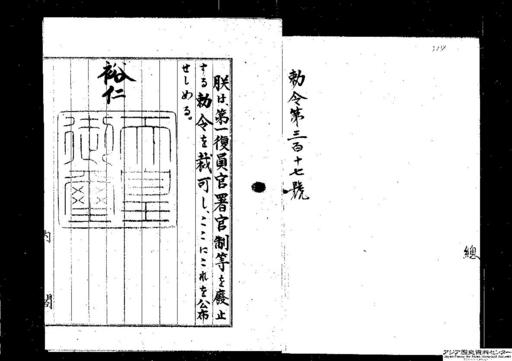 勅令第三百十七號
總
朕は、第一復員官署官制等を廢止
する勅令を裁可し、ここにこれを公布
せしめる。
裕仁
天皇
御璽
内閣
アジア歴史資料センター